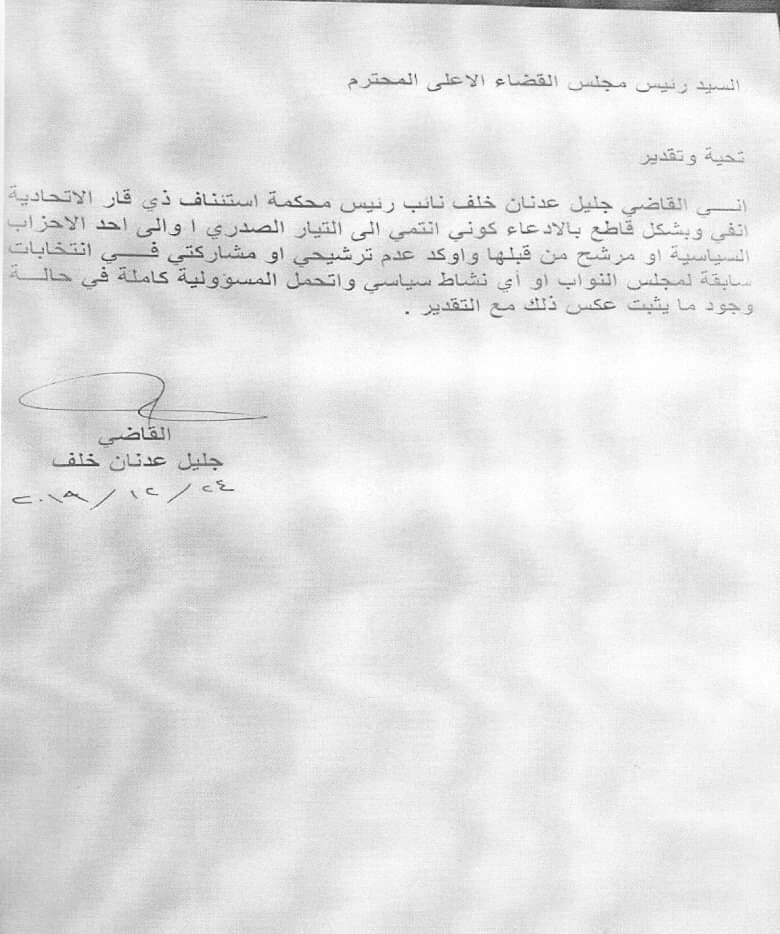 السيد رئيس مجلس القضاء الاعلى المحترم
تحية وتقدير
انــي القاضي جليل عدنان خلف نائب رئيس محكمة استئناف ذي قار الاتحادية
انفي وبشكل قاطع بالادعاء كوني انتمي الى التيار الصدري ا والى احد الاحزاب
السياسية او مرشح من قبلها واوكد عدم ترشيحي او مشاركتي فــي انتخابات
سابقة لمجلس النواب او أي نشاط سياسي واتحمل المسؤولية كاملة في حالــة
وجود ما يثبت عكس ذلك مع التقدير .
القاضي
جليل عدنان خلف
٢٤ / ١٢ / ٢٠١٩